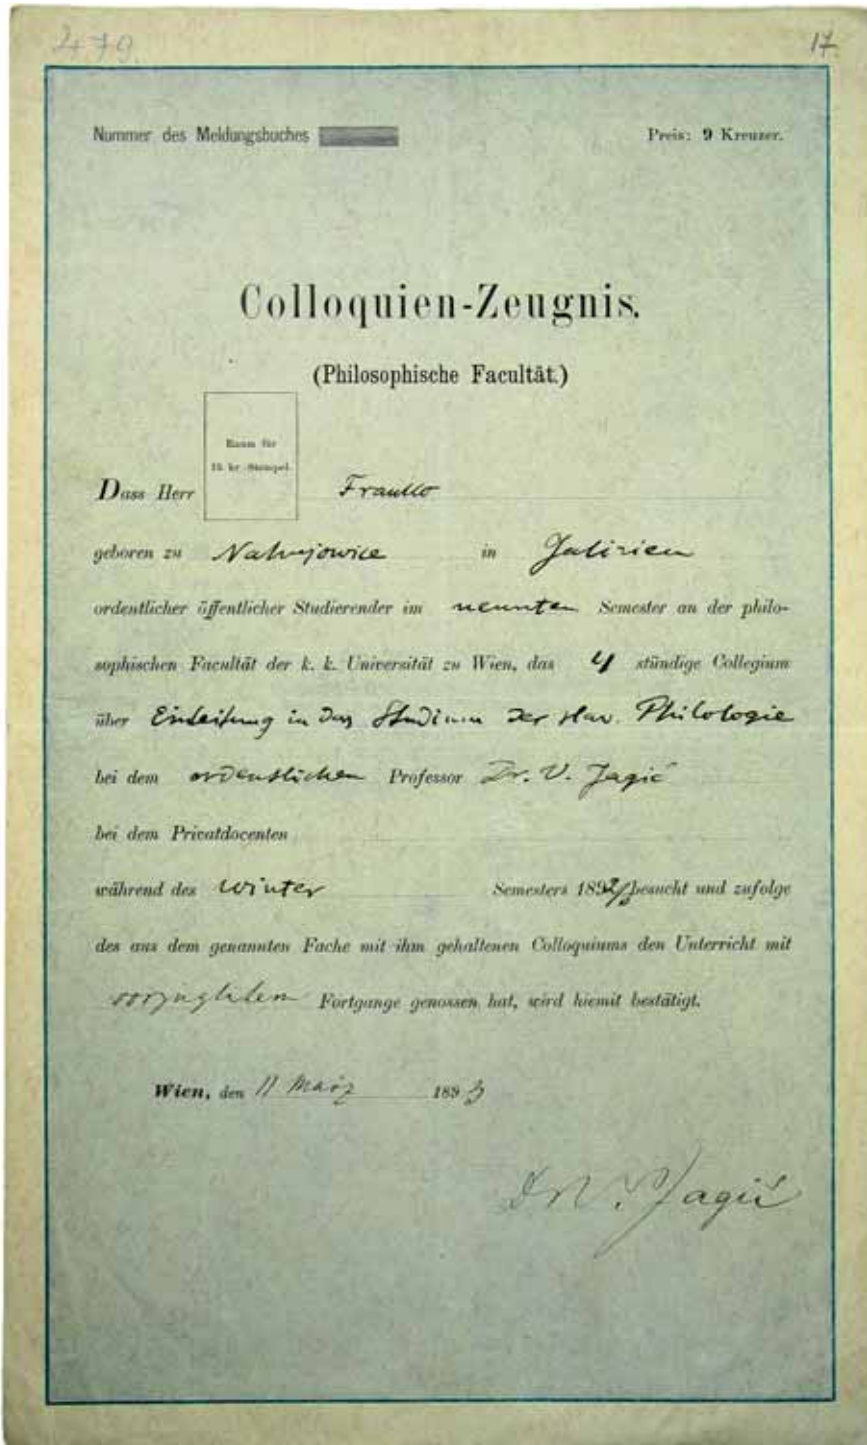 479. 17
Nummer des Meldungsbuches Preis: 9 Kreuzer.
Colloquien-Zeugnis.
(Philosophische Facultät.)
Raum für
15 kr.-Stempel.
Dass Herr Franko
geboren zu Nahujowice in Galizien
ordentlicher öffentlicher Studierender im neunten Semester an der philo-
sophischen Facultät der k. k. Universität zu Wien, das 4 stündige Collegium
über Einleitung in das Studium der slav. Philologie
bei dem ordentlichen Professor Dr. V. Jagić
bei dem Privatdocenten
während des Winter Semesters 1892/3 besucht und zufolge
des aus dem genannten Fache mit ihm gehaltenen Colloquiums den Unterricht mit
Fortgange genossen hat, wird hiemit bestätigt.
Wien, den 11 März 1893
Dr V. Jagić